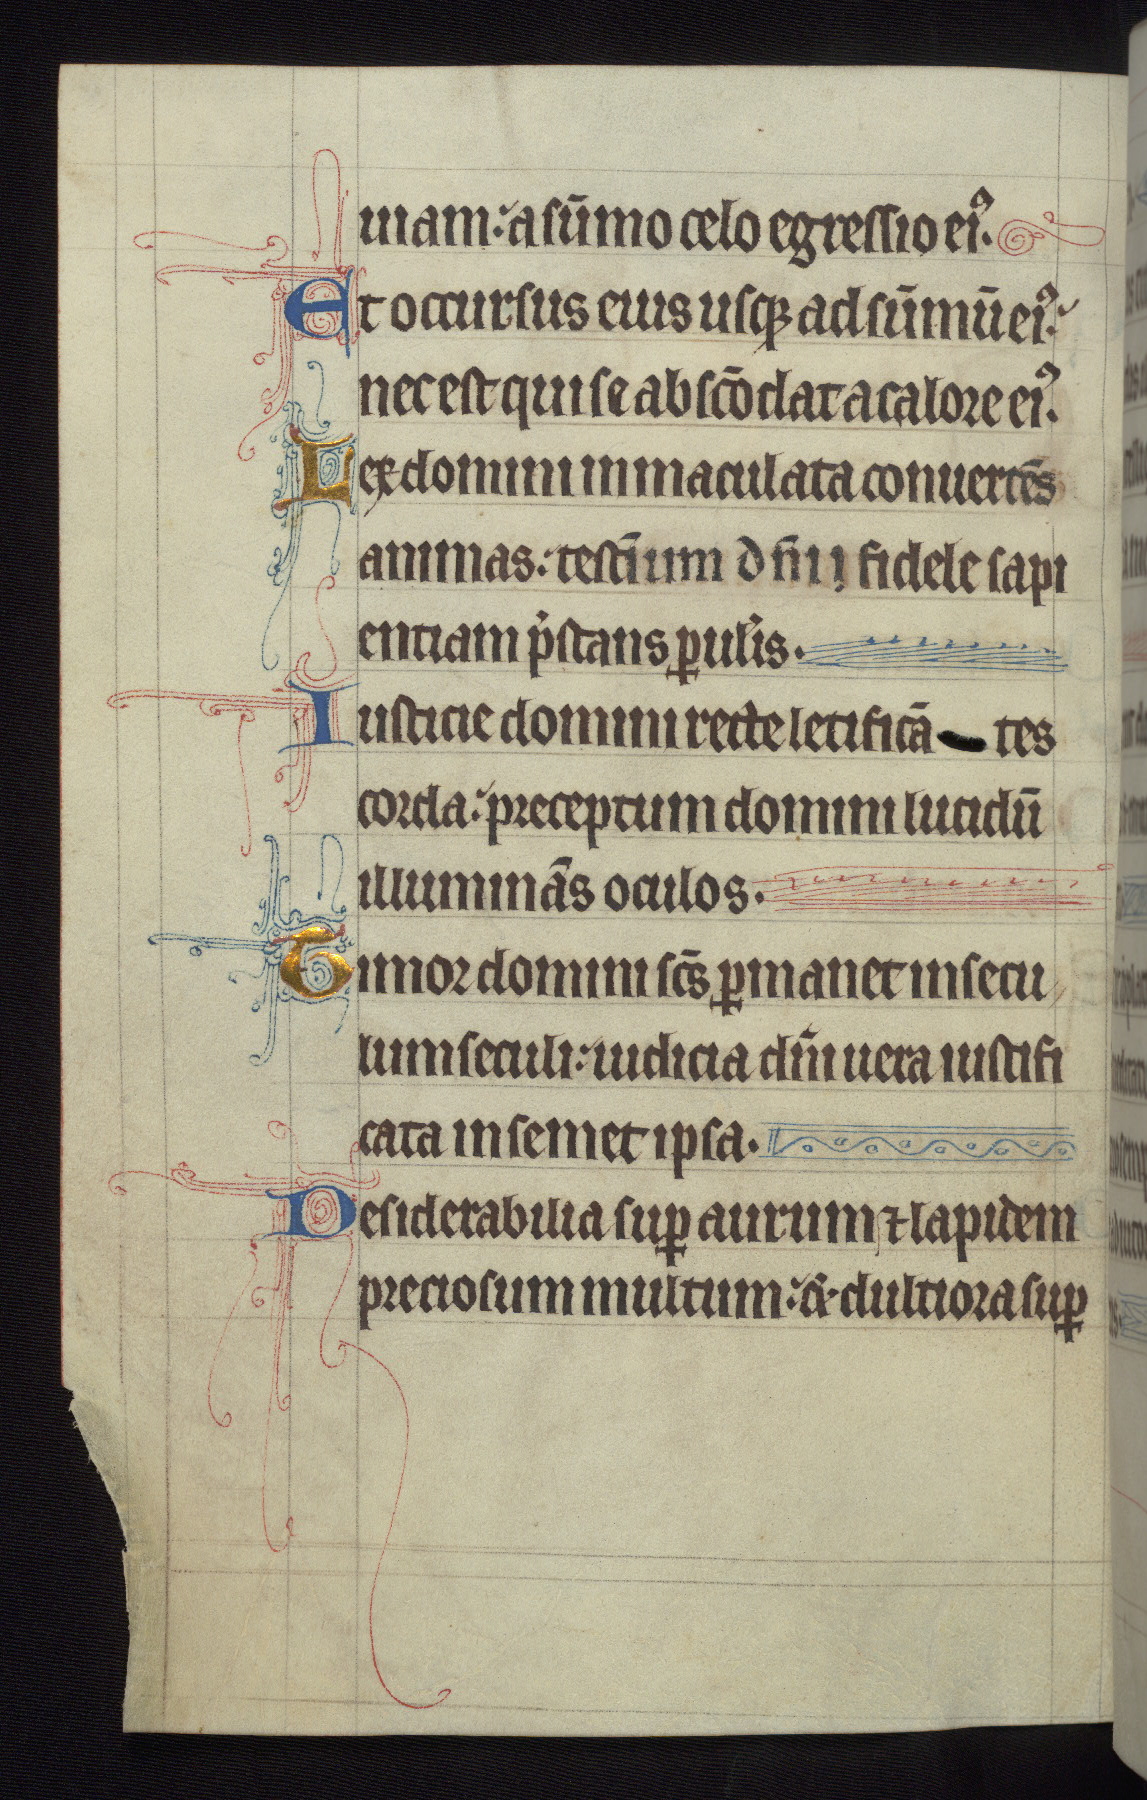 uiam: a su̅mo celo egressio ei᾿.
Et occursus eius usqꝫ ad su̅mu̅ ei᾿:
nec est qui se absco̅dat a calore ei᾿.
Lex domini inmaculata conuerte̅s
animas: testi̅um dn̅i fidele sapi
entiam p̾stans ꝑuul̾is.
Iusticie domini recte letifica̅ tes
corda: preceptum domini lucidu̅
illumina̅s oculos.
Timor domini sc̅s ꝑmanet in secu
lum seculi: iudicia dn̅i uera iustifi
cata in semet ipsa.
Desiderabilia suꝑ aurum ⁊ lapidem
preciosum multum: & dultiora suꝑ